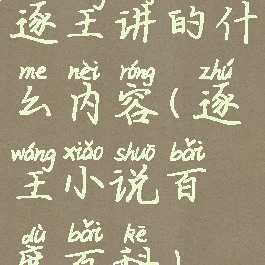 逐王讲的什
me nèi róng zhú
么内容(逐
wáng xiǎo shuō bǎi
王小说百
dù bǎi kē
度百科)